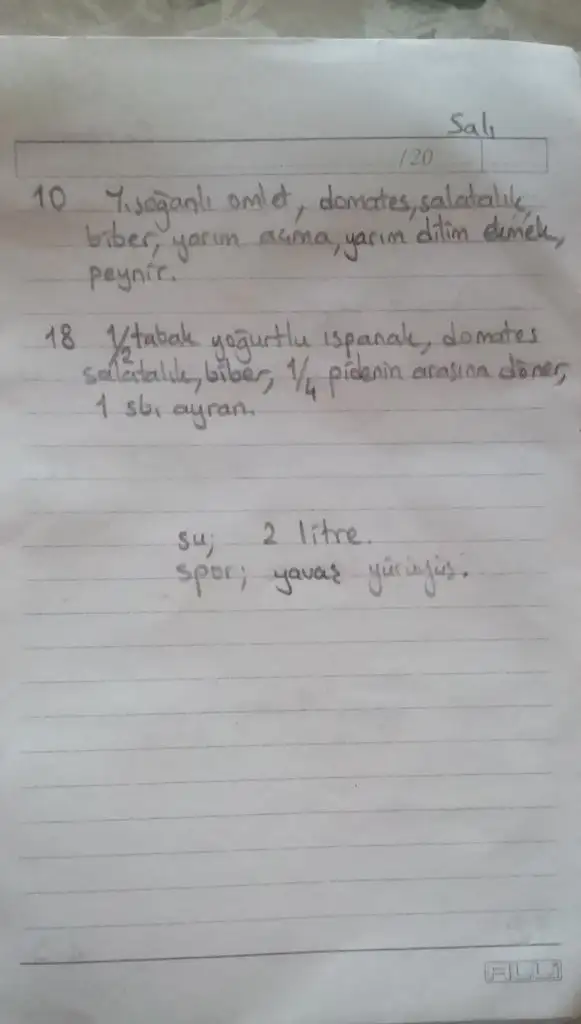 Salı
/20
10 Y.soğanlı omlet, domates, salatalık,
biber, yarım açma, yarım dilim ekmek,
peynir.
18 1/2 tabak yoğurtlu ıspanak, domates
salatalık, biber, 1/4 pidenin arasına döner,
1 sb. ayran.
su; 2 litre.
spor; yavaş yürüyüş.